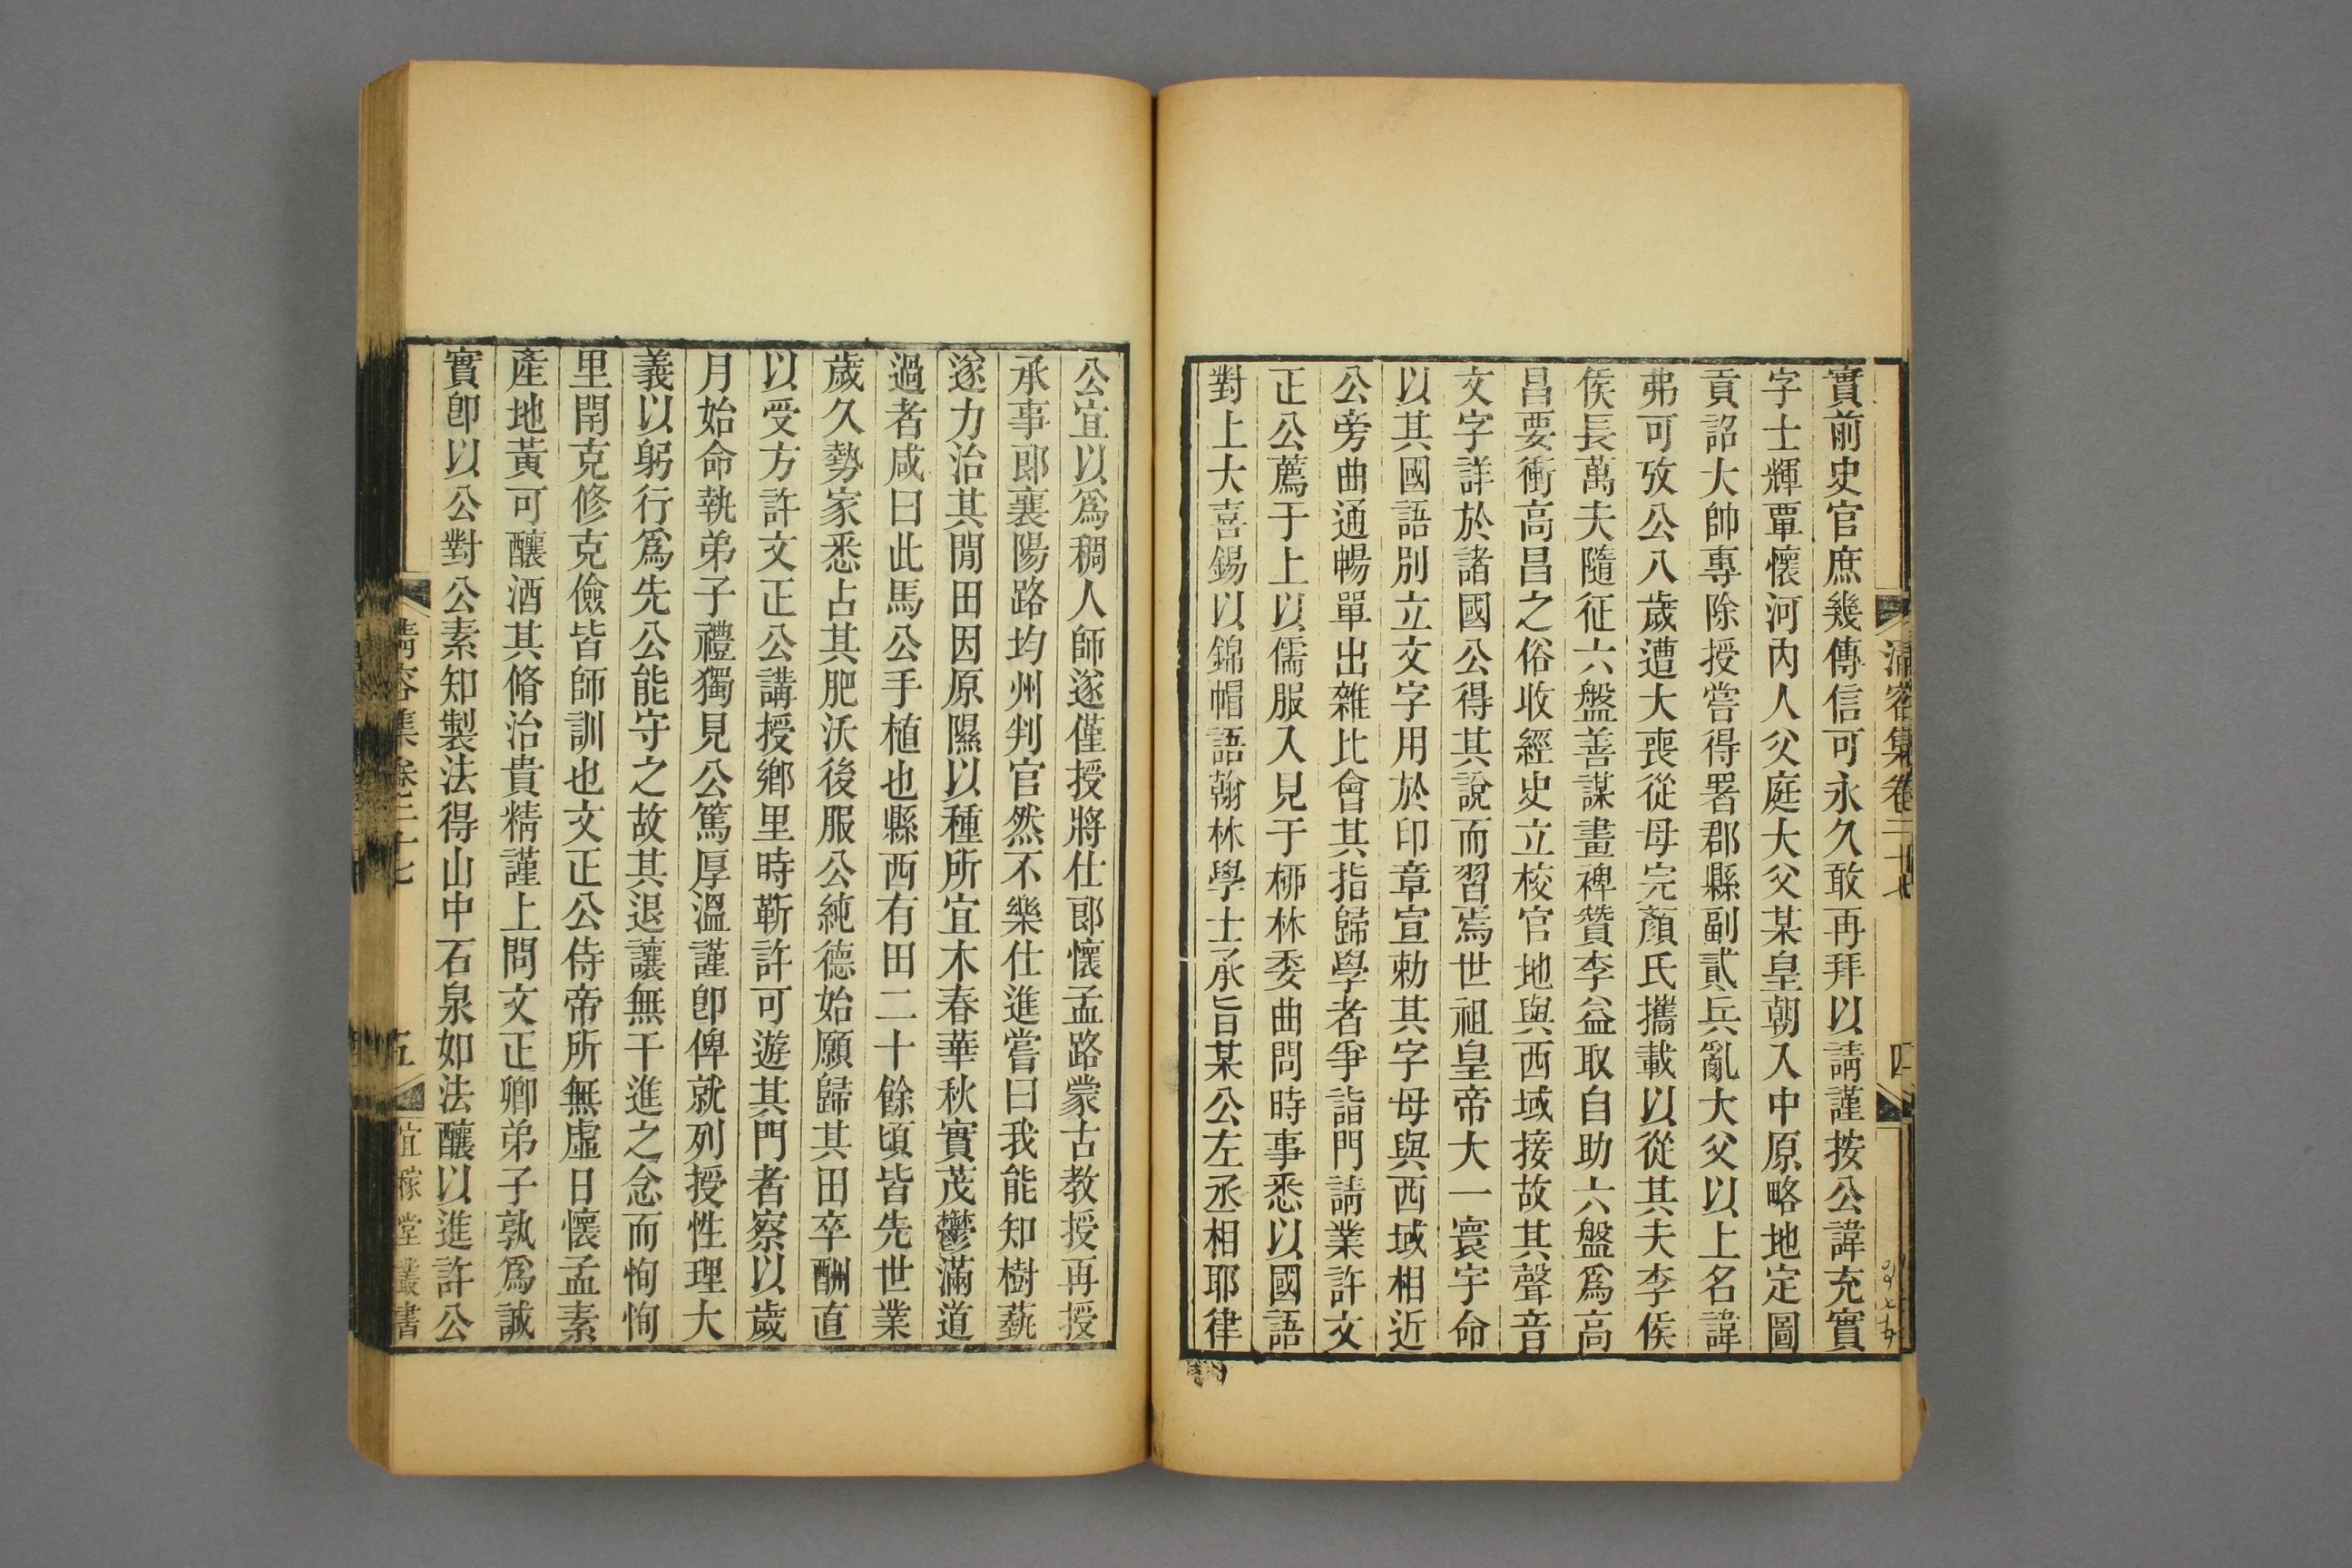 實前史官庶幾傳信可永久敢再拜以請謹按公諱充實
字士輝覃懷河內人父庭大父某皇朝入中原略地定圖
貢詔大帥專除授嘗得署郡縣副貳兵亂大父以上名諱
弗可攷公八歲遭大喪從母完顏氏攜載以從其夫李侯
侯長萬夫隨征六盤善謀畫裨贊李益取自助六盤爲高
昌要衝高昌之俗收經史立校官地與西域接故其聲音
文字詳於諸國公得其說而習焉世祖皇帝大一寰宇命
以其國語別立文字用於印章宣勅其字母與西域相近
公旁曲通暢單出雜比會其指歸學者爭詣門請業許文
正公薦于上以儒服入見于栁林委曲問時事悉以國語
對上大喜錫以錦帽語翰林學士承旨某公左丞相耶律
清容集卷二十七
四
公宜以爲稠人師遂僅授將仕郎懷孟路蒙古教授再授
承事郎襄陽路均州判官然不樂仕進嘗曰我能知樹蓺
遂力治其閒田因原隰以種所宜木春華秋實茂鬱滿道
過者咸曰此馬公手植也縣西有田二十餘頃皆先世業
歲久勢家悉占其肥沃後服公純德始願歸其田卒酬直
以受方許文正公講授鄉里時靳許可遊其門者察以歲
月始命執弟子禮獨見公篤厚溫謹卽俾就列授性理大
義以躬行爲先公能守之故其退讓無干進之念而恂恂
里閈克修克儉皆師訓也文正公侍帝所無虛日懷孟素
產地黃可釀酒其脩治貴精謹上問文正卿弟子孰爲誠
實卽以公對公素知製法得山中石泉如法釀以進許公
清容集卷二十七
五
宜稼堂叢書